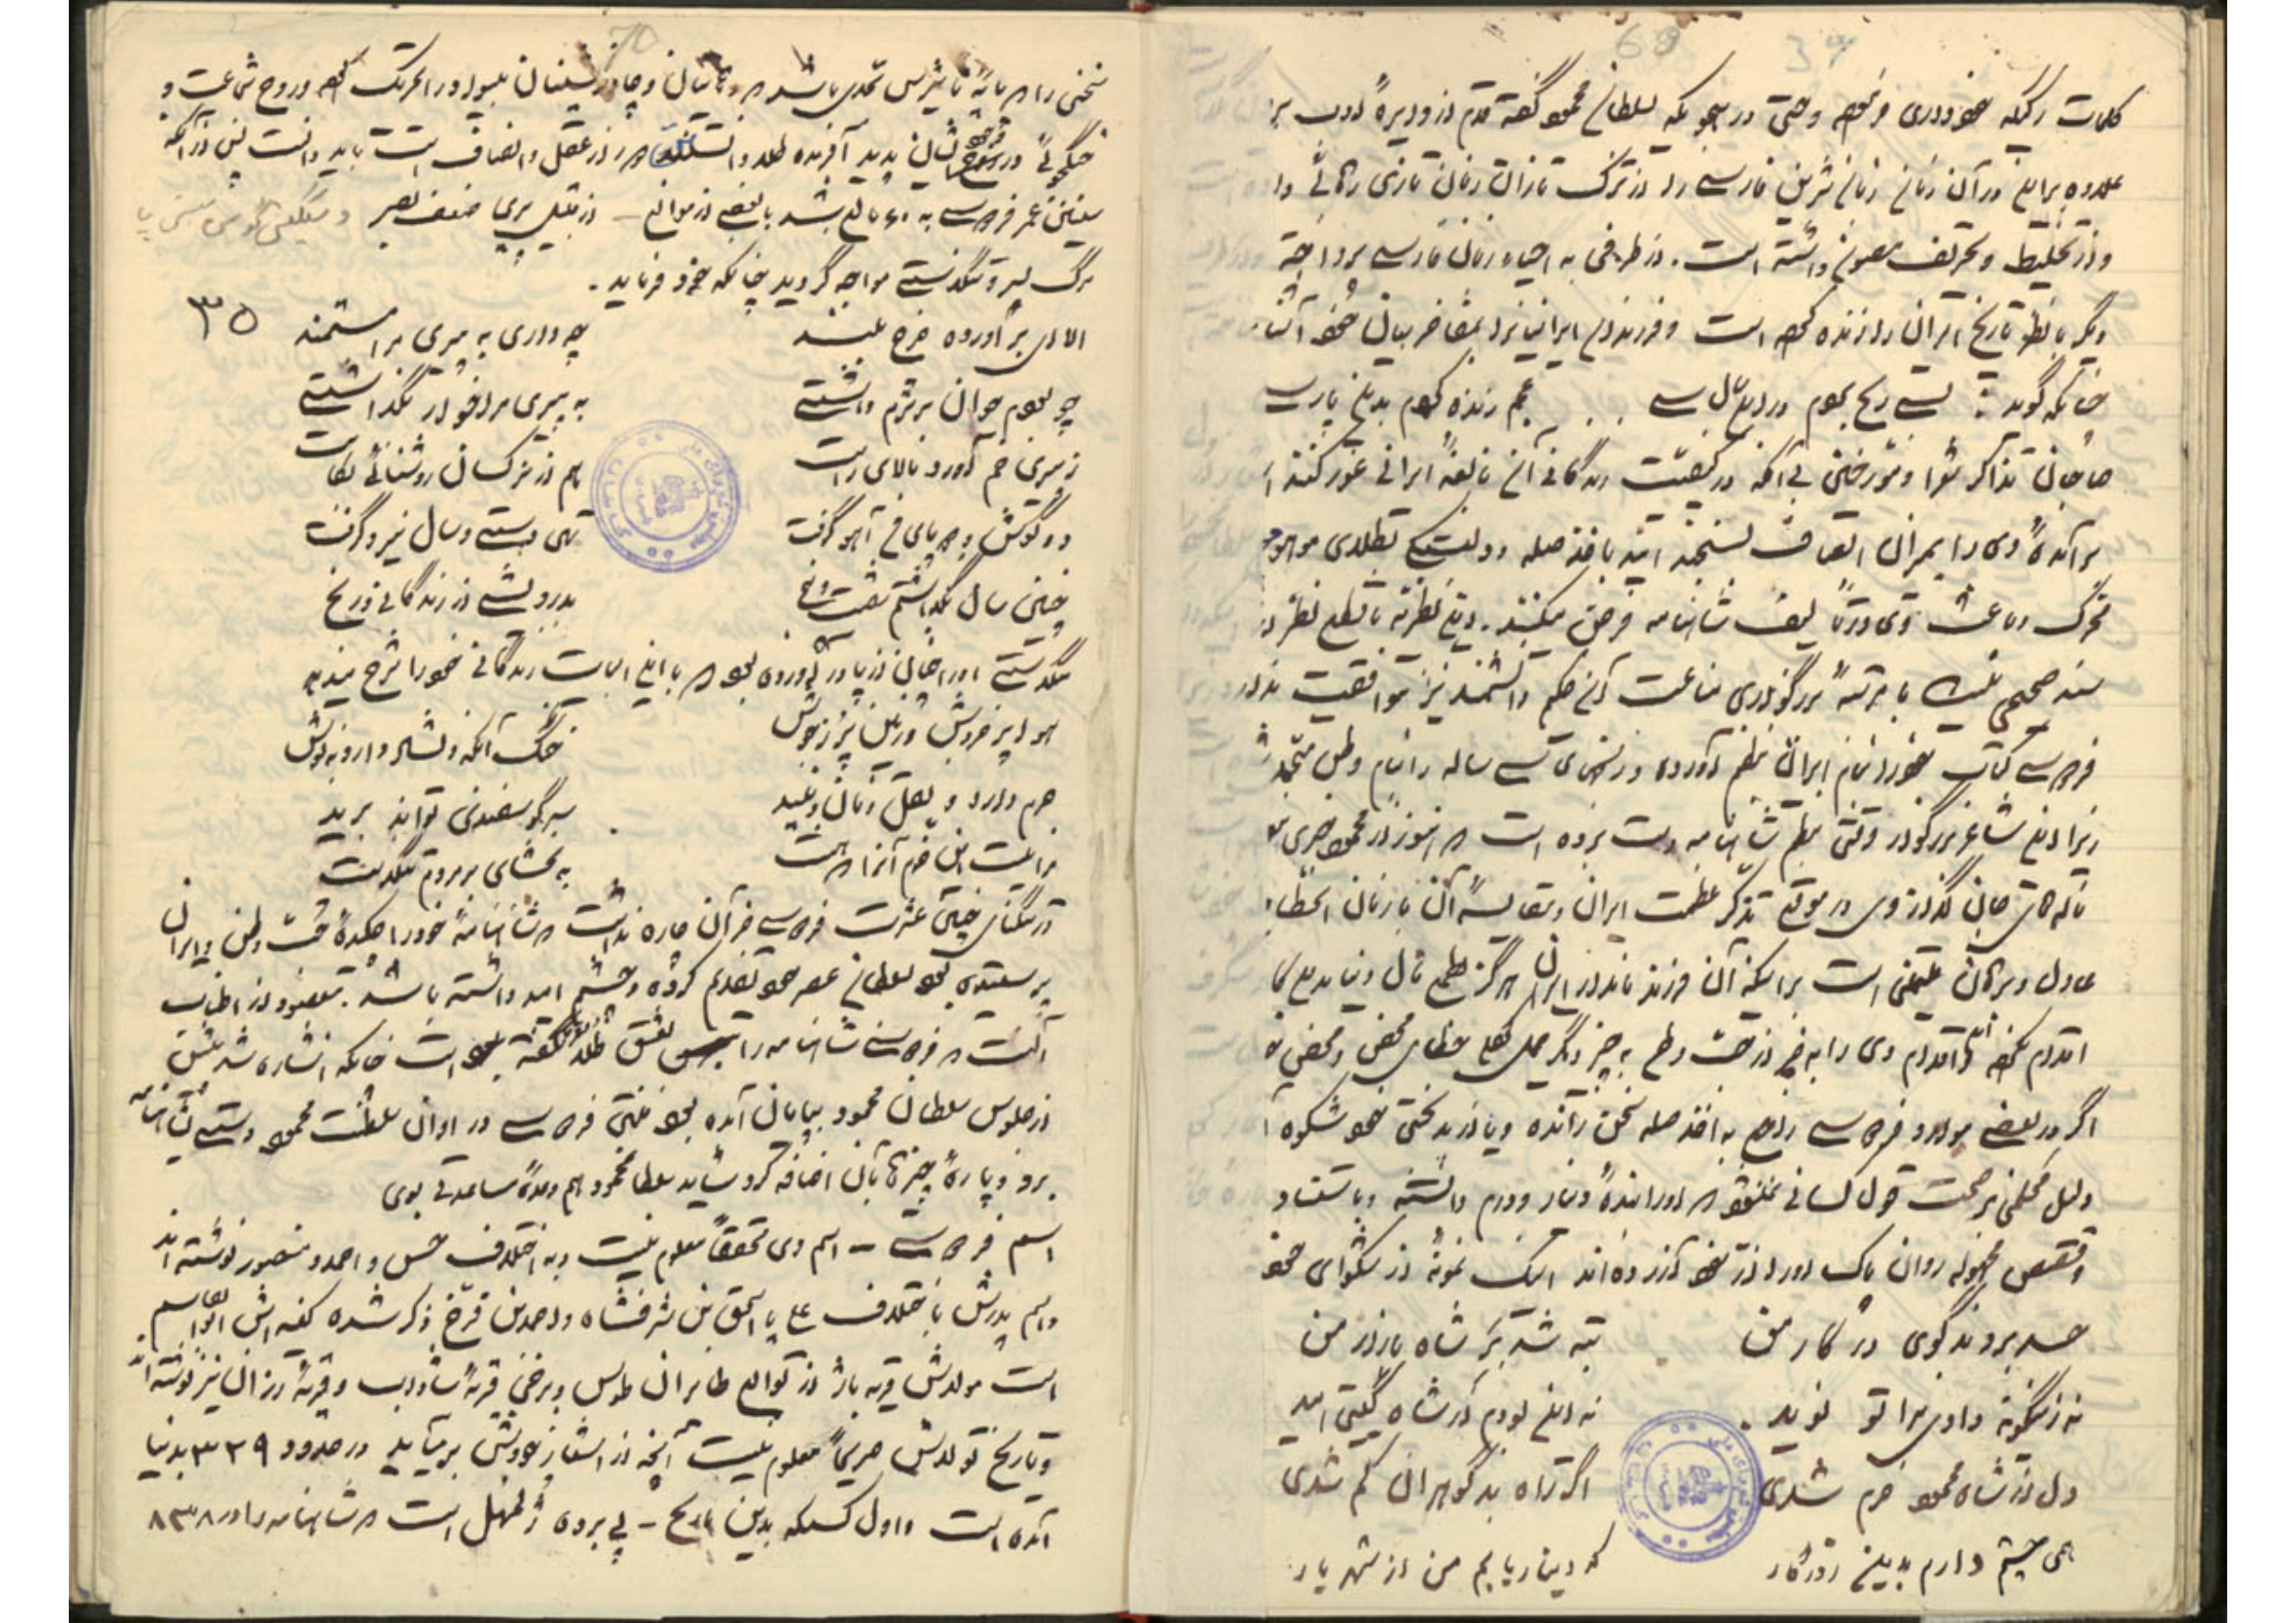 کلمات رکیکه خودداری فرموده و حتی در هجویکه بسلطان محمود گفته قدم از دایرهٔ ادب بر
علاوه براین در آن زمان زبان شیرین فارسی را از ترک تازان زبان تازی رهائی داد
و از تخلیط و تحریف مصون داشته است. از طرفی به احیاء زبان فارسی پرداخته
دیگر با نظم تاریخ ایران را زنده کرده است و فرزندان ایرانرا بمفاخر نیاکان خود آشنا
چنانکه گوید: بسی رنج بردم در این سال سی
عجم زنده کردم بدین پارسی
صاحبان تذاکر شعرا و مورخین بی آنکه در کیفیت زندگانی آن نابغهٔ ایرانی غور کنند
وی را بمیزان انصاف بسنجند باخذ صله و دلبستگی بطلای موهوم
محرک و باعث وی در تألیف شاهنامه فرض میکنند. این نظریه با قطع نظر از
سند صحیحی نیست با مرتبهٔ بزرگواری مناعت آن حکیم دانشمند نیز موافقت ندارد
فردوسی کتاب خود را بنام ایران بنظم آورده و رنجهای سی ساله را بنام وطن متحمل شد
زیرا این شاعر بزرگوار وقتی بنظم شاهنامه دست برده است که هنوز از محمود خبری نبود
ناله های جان گداز وی در موقع تذکر عظمت ایران و مقایسهٔ آن با زمان انحطاط
عادل و برهان متقنی است براینکه آن فرزند نامدار ایران هرگز بطمع مال دنیا بدین کار
اقدام نکرده و اقدام وی را به غیر از حب وطن به چیز دیگر حمل کردن خطای محض و محض
اگر در بعضی موارد فردوسی راجع به اخذ صله سخن رانده و یا از بدبختی خود شکوه
دلیل محکمی بر صحت قول کسانی نمیشود که او را بندهٔ دینار و درم دانسته و باستناد
قصص مجعوله روان پاک او را از خود آزرده اند اینک نمونهٔ از شکوای خود
حسد برد بدگوی در کار من
تبه شد بر شاه بازار من
نه زینگونه دادی مرا تو نوید
نه این بودم از شاه گیتی امید
دل از شاه محمود خرم شدی
اگر راه بد گوهران کم شدی
همی چشم دارم بدین روزگار
که دینار یابم من از شهریار
70
سخنی را که تا به این تأثیرش تحدی باشد که دهاتیان و چادرنشینان بیسواد را تحریک کرده و روح شجاعت و
جنگجوئی در نهاد ایشان پدید آورده طلا دانستن دور از عقل و انصاف است باید دانست پس از آنکه
سنین عمر فردوسی به ۶۰ بالغ شد با بعضی از موانع - از قبیل پیری ضعف بصر و سنگینی گوش سستی پا
مرگ پسر و تنگدستی مواجه گردید چنانکه خود فرماید.
الا ای برآورده چرخ بلند
چه داری به پیری مرا مستمند
۳۵
چو بودم جوان برترم داشتی
به پیری مرا خوار بگذاشتی
ز پیری خم آورد بالای راست
هم از نرگسان روشنائی بکاست
دو گوش و دو پای من آهو گرفت
تهی دستی و سال نیرو گرفت
چنین سال بگذاشتم شصت و پنج
بدرویشی از زندگانی و رنج
تنگدستی او را چنان از پا در آورده بود که با این ابیات زندگانی خود را شرح میدهد
هوا پر خروش و زمین پر ز جوش
خنک آنکه دلشاد دارد بنوش
درم دارد و نقل و نان و نبید
سر گوسفندی تواند برید
مرا نیست این خرم آنرا که هست
به بخشای بر مردم تنگدست
در تنگنای چنین عسرت فردوسی جز آن چاره نداشت که شاهنامهٔ خود را که چکیدهٔ حب وطن و ایران
پرستیدن بود بسلطان عصر خود تقدیم کرده و چشم امید داشته باشد. مقصود از اطناب
آنست که فردوسی شاهنامه را بعشق طلا نگفته بوده است چنانکه اشاره شد پیش
از جلوس سلطان محمود بپایان آمده بود منتهی فردوسی در اوان سلطنت محمود دستی بشاهنامه
برد و پارهٔ چیزها بآن اضافه کرد شاید سلطان محمود هم وعدهٔ مساعدتی بوی
اسم فردوسی - اسم وی محققاً معلوم نیست و به اختلاف حسن و احمد و منصور نوشته اند
و اسم پدرش باختلاف علی یا اسحق بن شرفشاه و احمد بن فرخ ذکر شده کنیه اش ابوالقاسم
است مولدش قریه باژ از توابع طابران طوس و برخی قریهٔ شاداب و قریهٔ رزان نیز نوشته اند
و تاریخ تولدش صریحاً معلوم نیست آنچه از اشعار خودش بر میآید در حدود ۳۳۹ بدنیا
آمده است و اول کسیکه بدین تاریخ - پی برده ژلمهل است که شاهنامه را در ۱۸۳۸